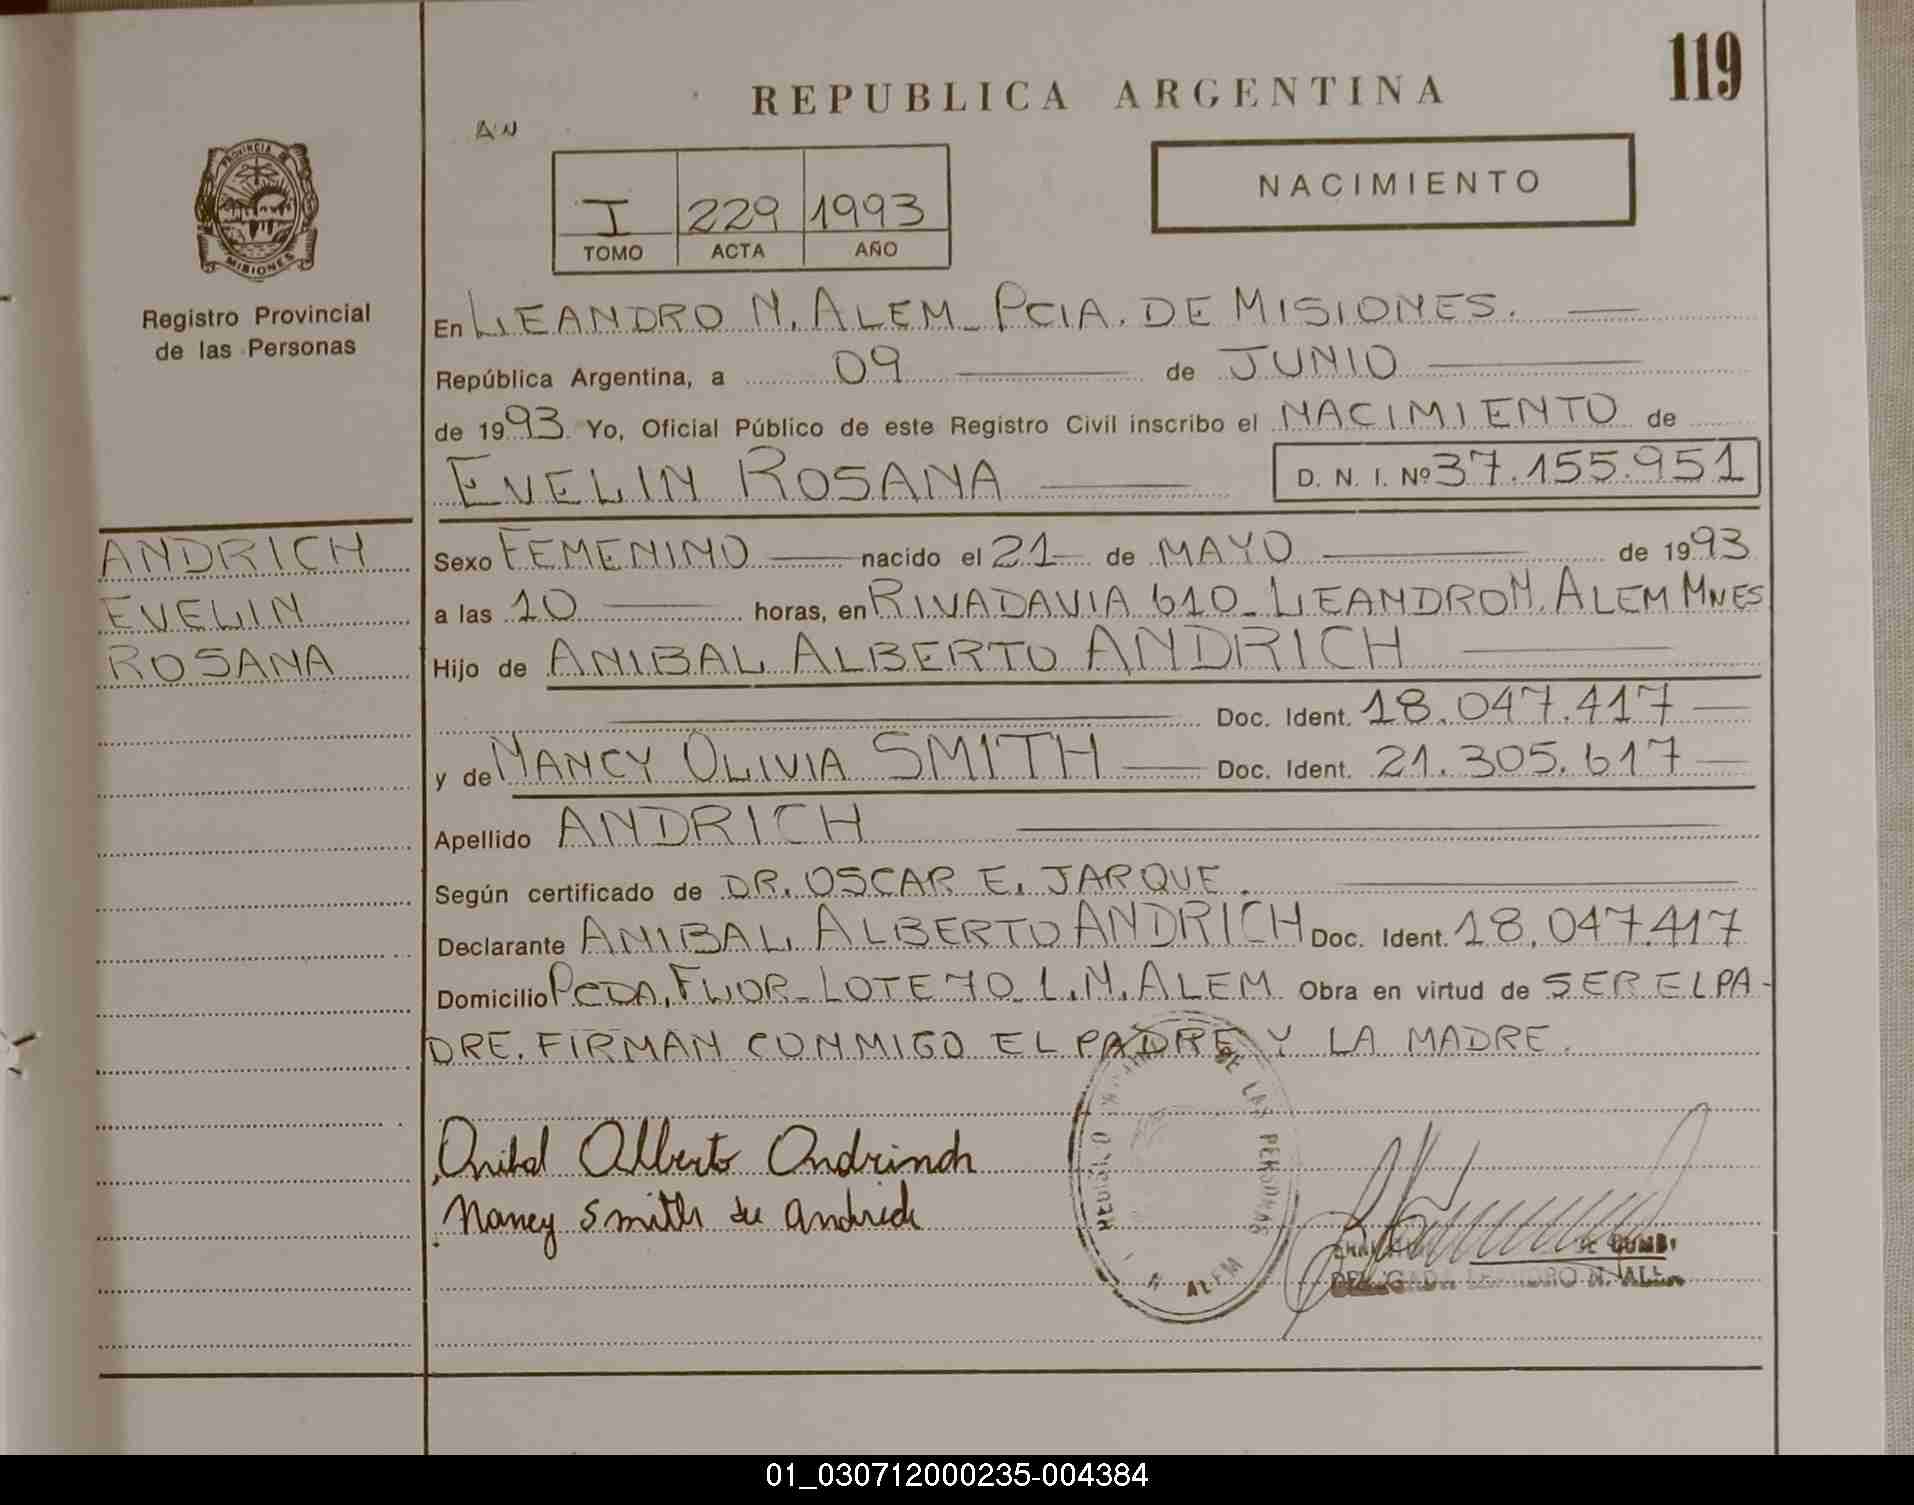 119
REPUBLICA ARGENTINA
AN
I 229 1993
TOMO ACTA AÑO
NACIMIENTO
PROVINCIA DE
MISIONES
Registro Provincial
de las Personas
En LEANDRO N. ALEM - PCIA. DE MISIONES.
República Argentina, a 09 de JUNIO
de 1993 Yo, Oficial Público de este Registro Civil inscribo el NACIMIENTO de
EVELIN ROSANA D. N. I. Nº 37.155.951
ANDRICH
EVELIN
ROSANA
Sexo FEMENINO nacido el 21 de MAYO de 1993
a las 10 horas, en RIVADAVIA 610 - LEANDRO N. ALEM MNES
Hijo de ANIBAL ALBERTO ANDRICH
Doc. Ident. 18.047.417
y de NANCY OLIVIA SMITH Doc. Ident. 21.305.617
Apellido ANDRICH
Según certificado de DR. OSCAR E. JARQUE.
Declarante ANIBAL ALBERTO ANDRICH Doc. Ident. 18.047.417
Domicilio PCDA. FLOR - LOTE 70 L.N. ALEM Obra en virtud de SER EL PA-
DRE. FIRMAN CONMIGO EL PADRE Y LA MADRE.
Anibal Alberto Andrinch
Nancy Smith de Andrich
DE LAS PERSONAS
N ALEM
01_030712000235-004384